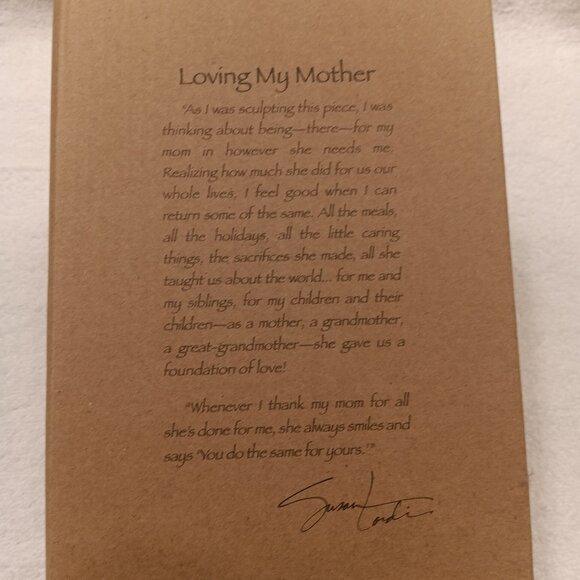 Loving My Mother
"As I was sculpting this piece, I was
thinking about being—there—for my
mom in however she needs me.
Realizing how much she did for us our
whole lives, I feel good when I can
return some of the same. All the meals,
all the holidays, all the little caring
things, the sacrifices she made, all she
taught us about the world... for me and
my siblings, for my children and their
children—as a mother, a grandmother,
a great-grandmother—she gave us a
foundation of love!
"Whenever I thank my mom for all
she's done for me, she always smiles and
says 'You do the same for yours.'"
Susan Lordi